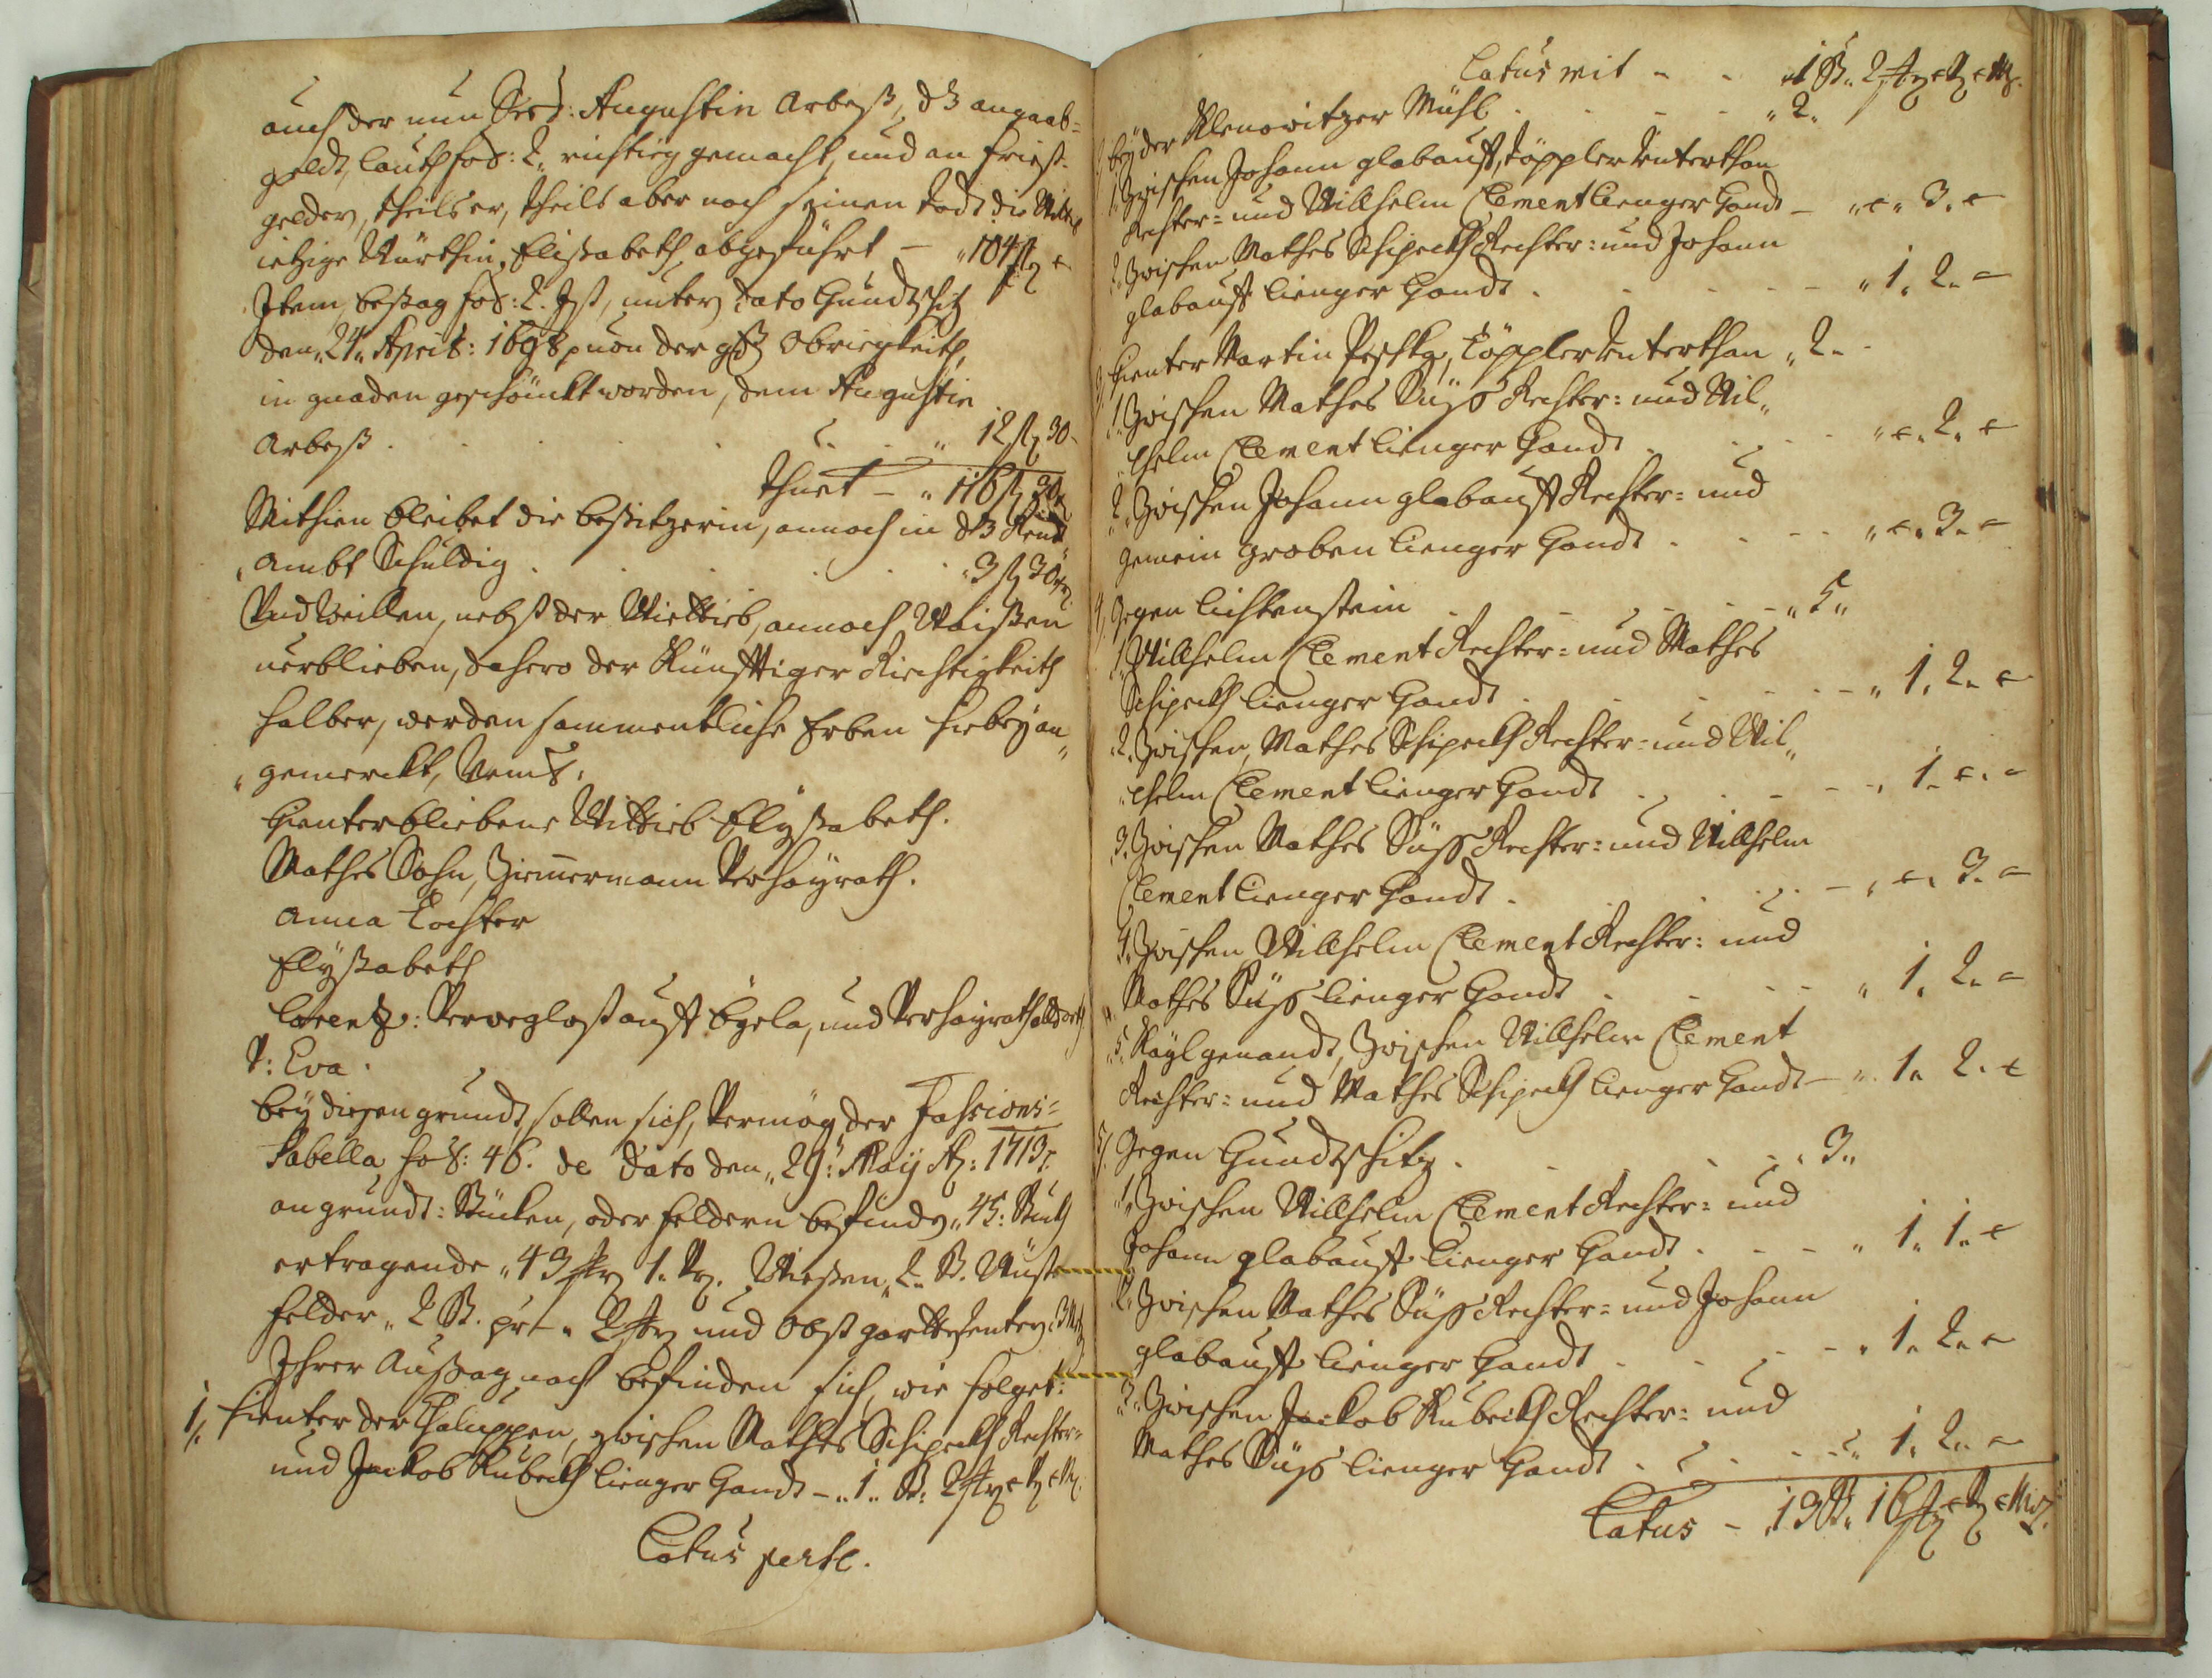 auch der nun Seel: Augustin Arbeß, dz angaab=
geldt, lauth fol: 2. richtig gemacht, und an frist=
gelder, theils er, theils aber noch seinen todt die
ietzige Würthin, Elißabeth abgeführt — "104 fl
Item, besag fol: 2. Ist, unter dato Gundtschitz
den "24" April: 1698 uon der gst Obrigkeith,
in gnaden geschönckt worden, dem Augustin
Arbeß . . . . " 12 fl 30.
thuet — " 116 fl 30
Mithien bleibet die besitzerin, annoch in dz Rend
Ambt Schuldig . . . . " 3 fl 30
Und Weillen, nebst der Wiettib, annoch Waißen
uerblieben, dahero der Künfftiger Riechtigkeith
halber, werden sammentliche Erben hiebey an
gemerckt, Benent.
Hienterbliebene Wittieb Elyßabeth.
Mathes Sohn, Ziemmermann Verheyrath.
Anna Tochter
Elyßabeth
Lorentz: auff und Verheyrath
V: Eva.
Bey diesen grundt, sollen sich, Vermög der Fassions=
Tabella fol: 46. de Dato den "29: May A: 1713
an grundt: Stücken, oder feldern befinden "45: Stuckh
ertragende "43 1. Wiesen "2. St. Wüste
felder "2 St. pr und Obst
Ihrer Außag nach befinden sich, wie folget:
1. hienter der Chaluppen, zwischen Mathes Schipeckh Rechter=
und Jackob Kubeckh Lienger Handt — "1" St: 2
Latus perse.
Latus mit - - 1 St. 2
2. bey der Klenowitzer Mühl . . . . "2.
1. Zwischen Johann glabauff, töppler Unterthan
Rechter= und Willhelm Clement Lienger Handt — " 3.
2. Zwischen, Mathes Schipeckh Rechter= und Johann
glabauff Lienger Handt . . . . " 1. 2.
3. hienter Martin Peschka, töppler Unterthan "2.
1. Zwischen Mathes Süss Rechter= und Wil"
"lhelm Clement Lienger Handt . . . . " 2.
2. Zwischen Johann glabauff Rechter= und
gemein graben Lienger Handt . . . . " 3.
4. gegen Lichtenstein . . . . "5"
1. Willhelm Clement Rechter= und Mathes
Schipeckh Lienger Handt . . . . " 1. 2.
2. Zwischen, Mathes Schipeckh Rechter= und Wil"
"lhelm Clement Lienger Handt . . . . 1.
3. Zwischen Mathes Süss Rechter= und Willhelm
Clement Lienger Handt . . . . 3.
4. Zwischen Willhelm Clement Rechter= und
Mathes Süss Lienger Handt . . . . " 1. 2.
5. genandt, Zwischen Willhelm Clement
Rechter= und Mathes Schipeckh Lienger Handt — " 1. 2.
5. gegen Gundtschitz . . . . 3.
1. Zwischen Willhelm Clement Rechter= und
Johann glabauff Lienger Handt . . . . " 1. 1.
2. Zwischen Mathes Süss Rechter= und Johann
glabauff Lienger Handt . . . . " 1. 2.
3. Zwischen Jackob Kubeckh Rechter= und
Mathes Süss Lienger Handt . . . . " 1. 2.
Latus — "13 St. 16